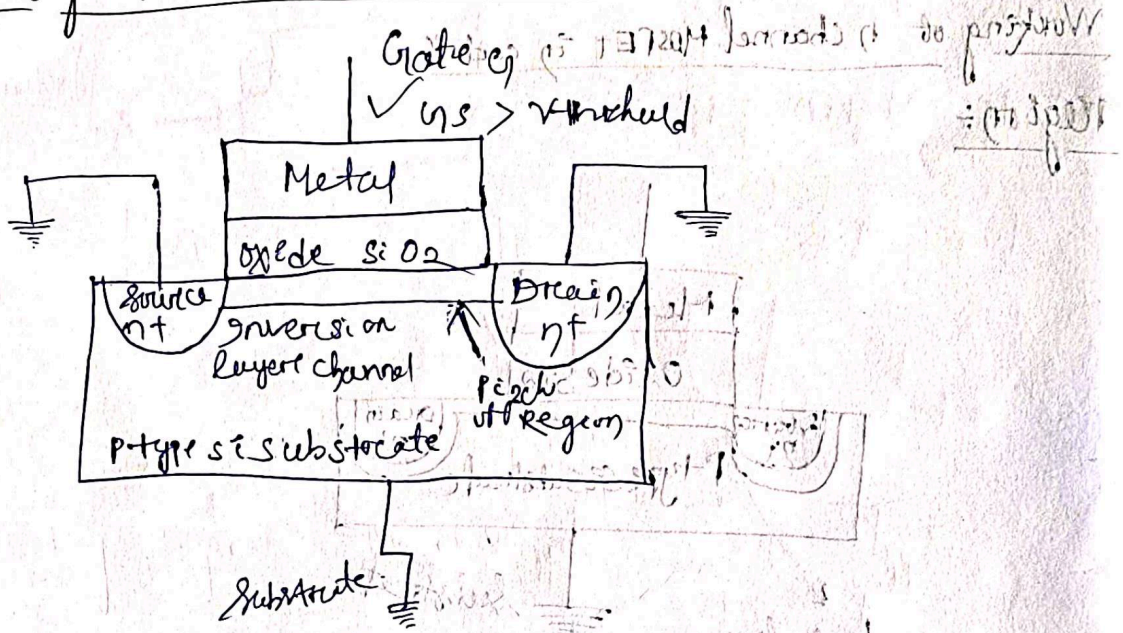 Gate G
VGS > Vthreshold
Metal
oxide SiO2
Source
n+
Drain
n+
Inversion
layer channel
Pinch
off Region
p-type si substrate
Substrate